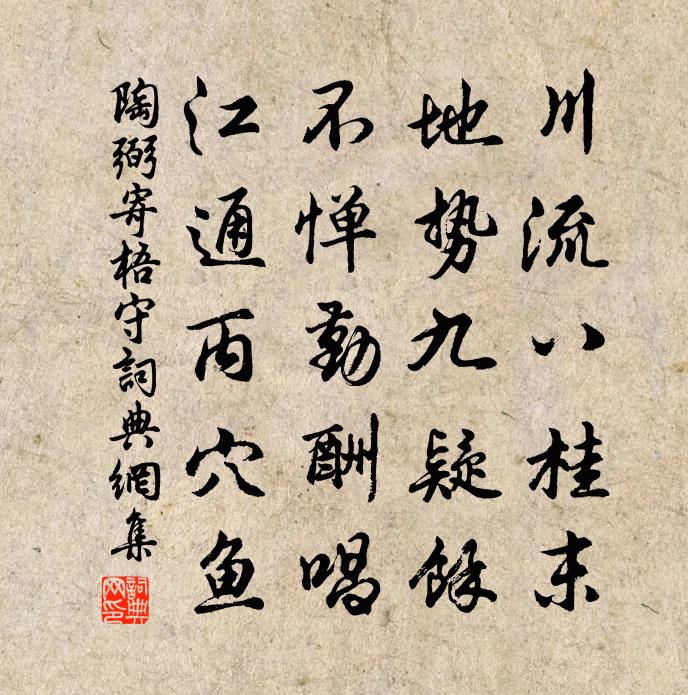 川流八桂末
地势九疑馀
不惮勤酬唱
江通丙穴鱼
陶弼寄梧守詞典網集
詞典
网印